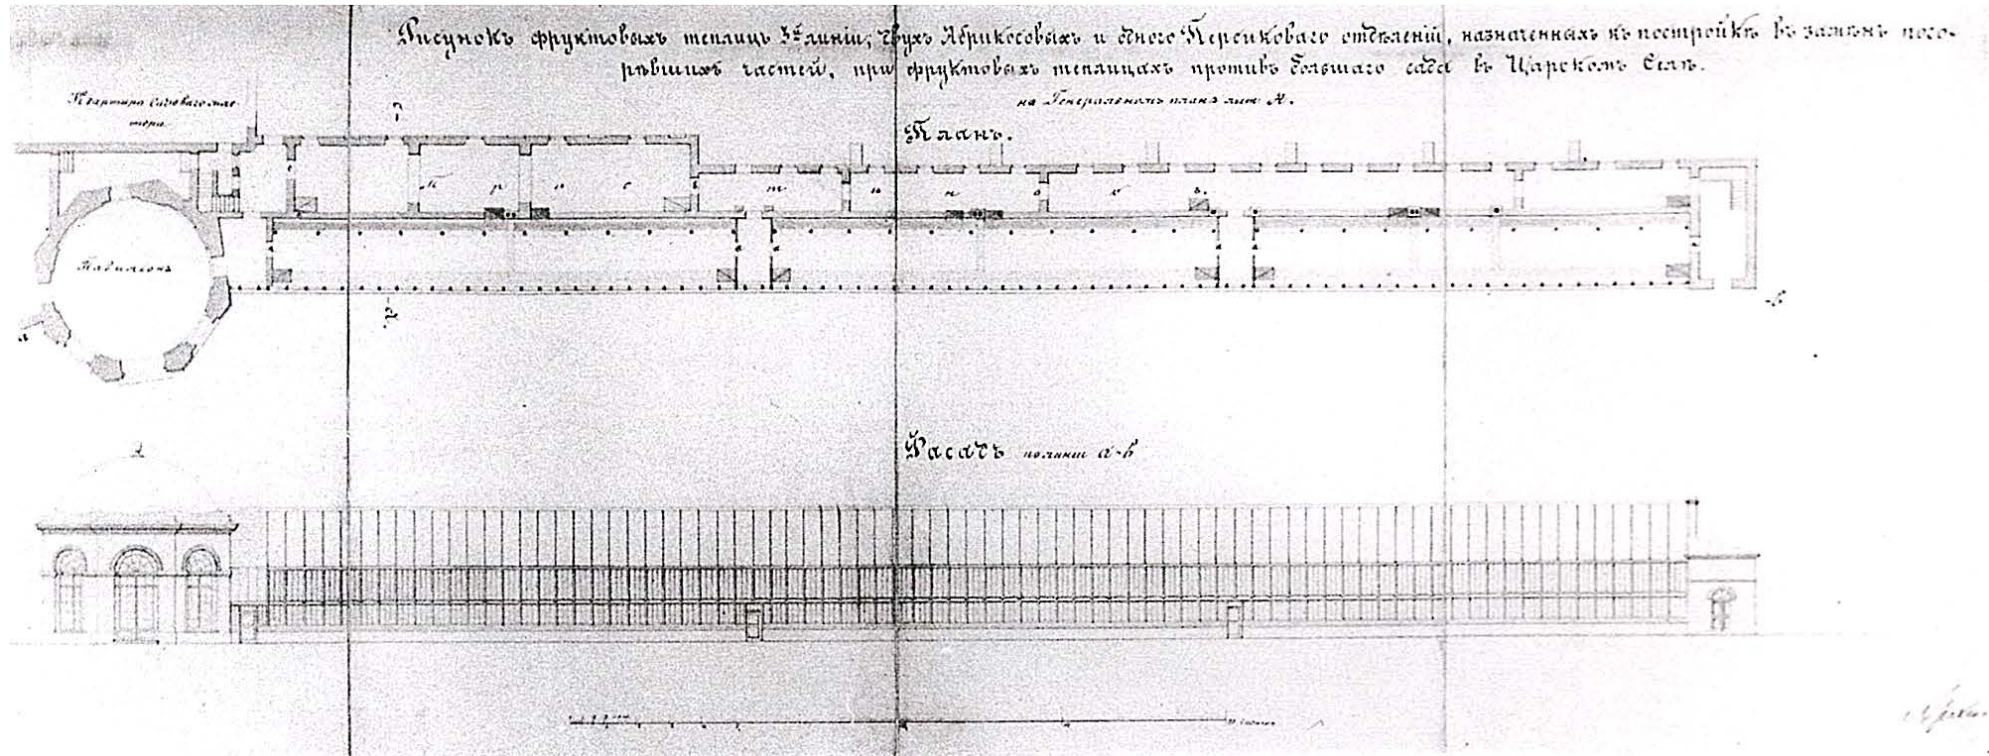 Рисунокъ фруктовыхъ теплицъ 3й линіи, двухъ Абрикосовыхъ и одного Персиковаго отдѣленій, назначенныхъ къ постройкѣ въ замѣнъ пого-
рѣвшихъ частей, при фруктовыхъ теплицахъ противъ большаго сада въ Царскомъ Селѣ.
на Генеральномъ планѣ лит. А.
Квартира садоваго мас-
тера
Планъ.
Павиліонъ
Фасадъ по линіи a-b